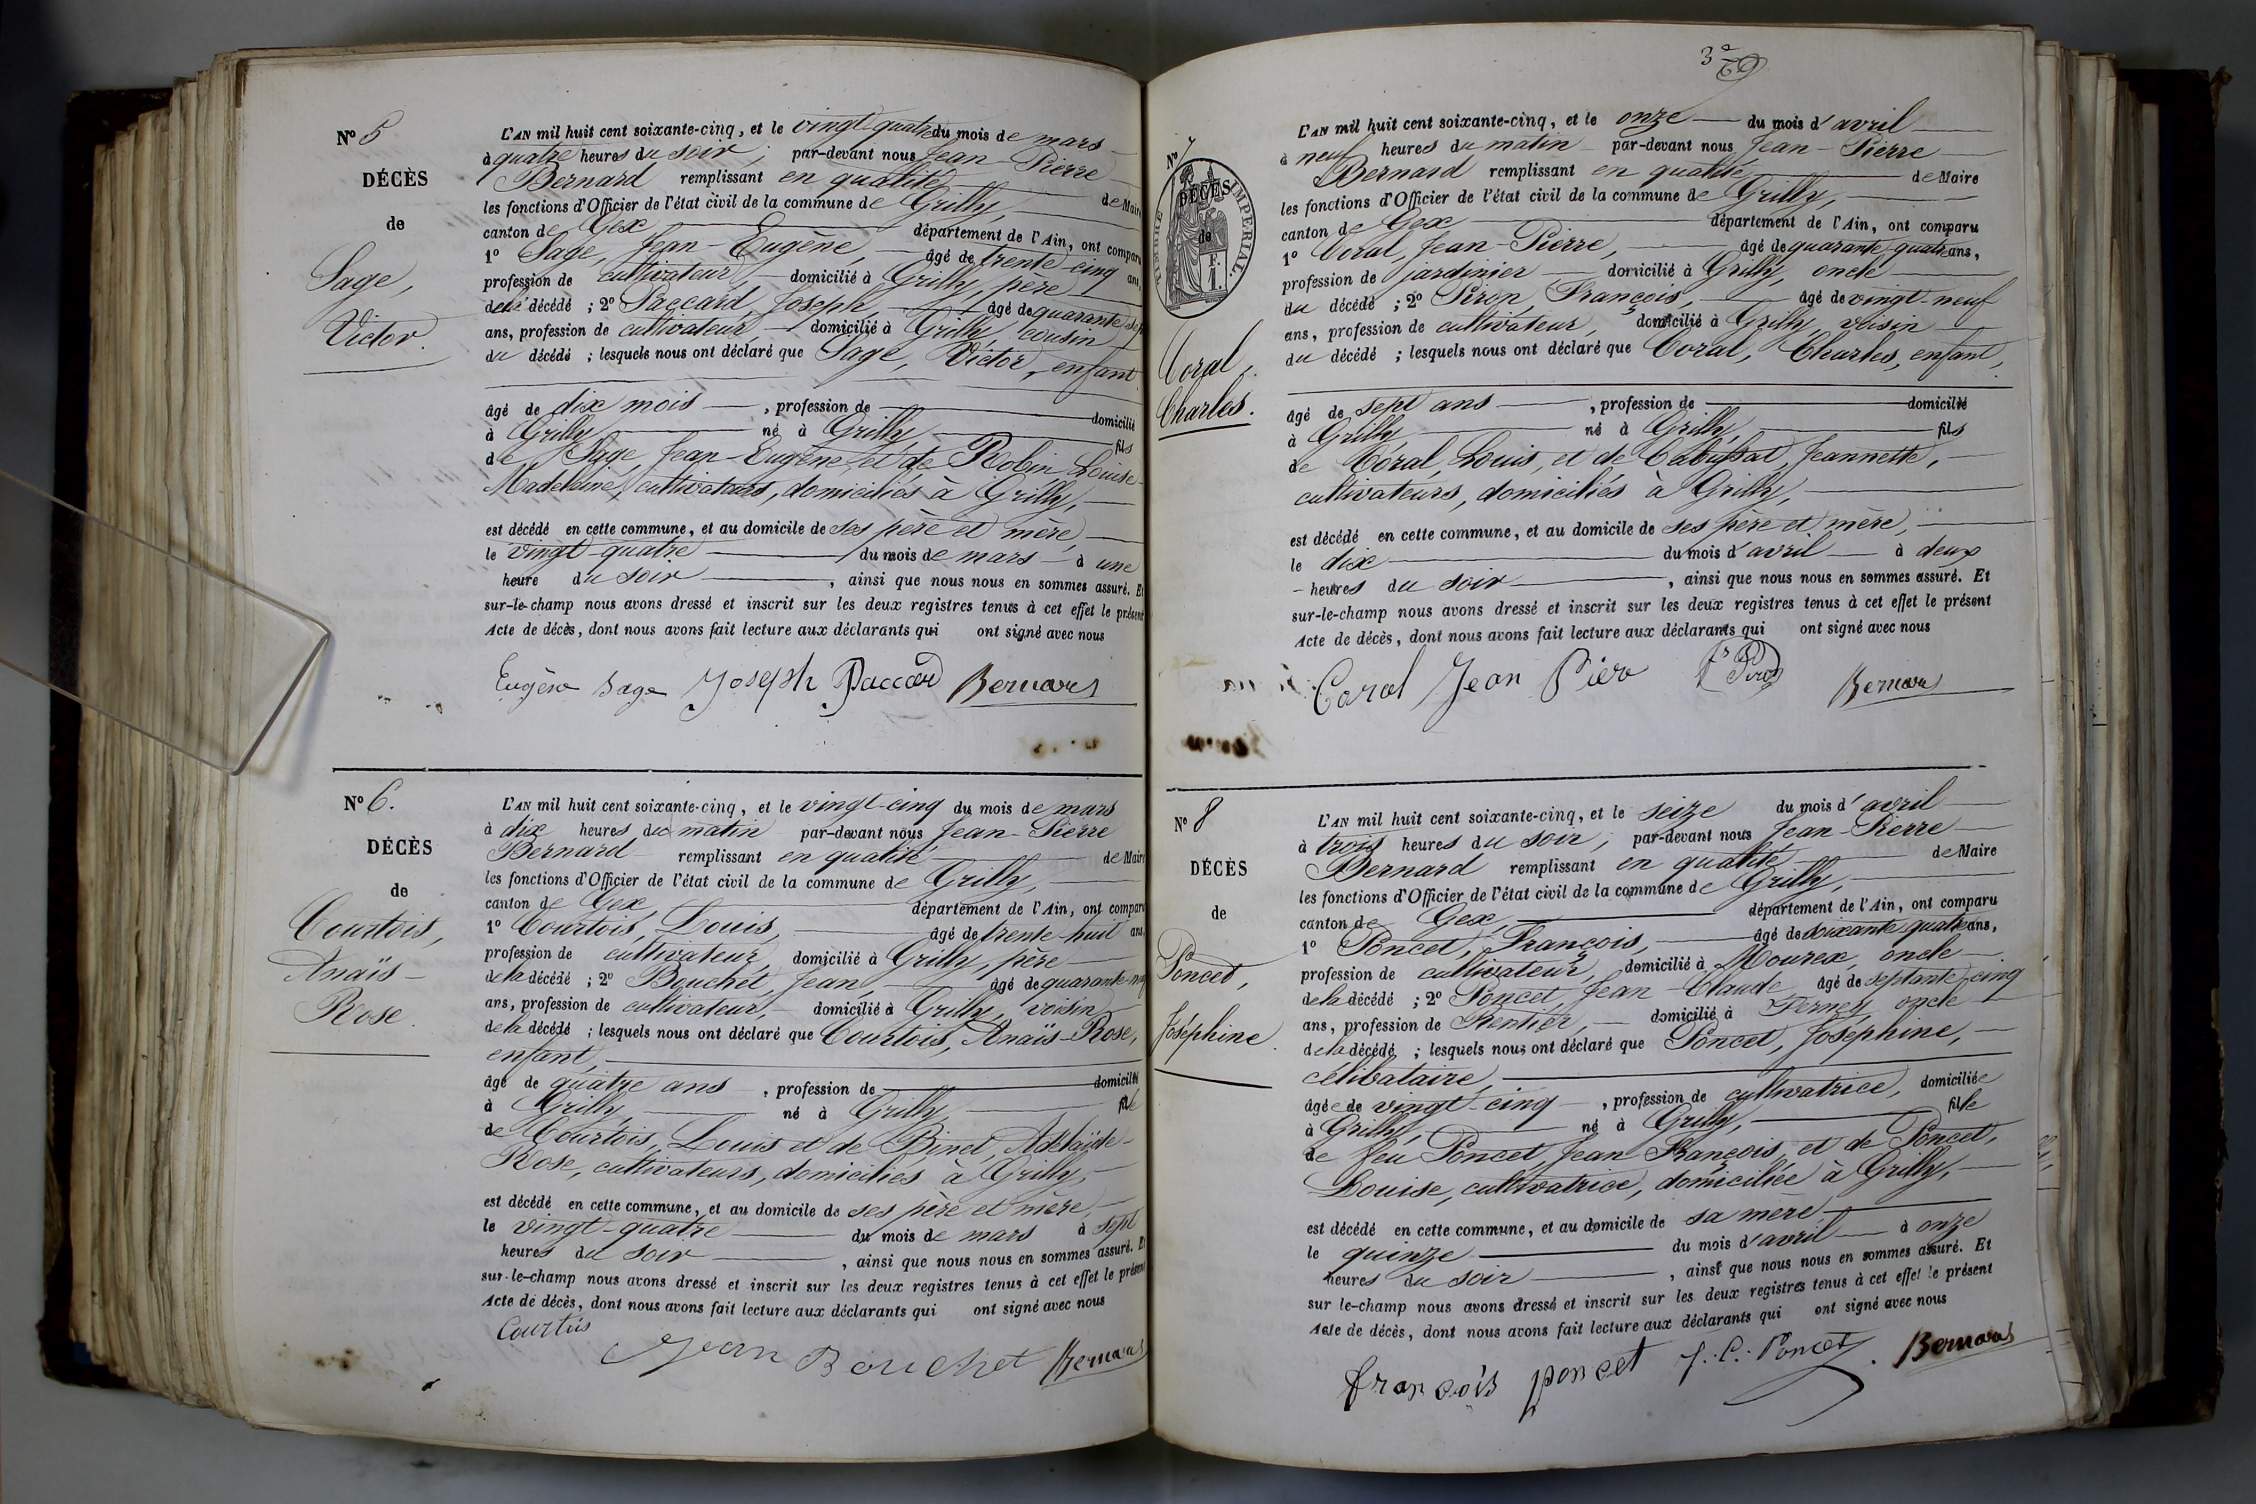 Nº 5
DÉCÈS
de
Sage,
Victor.
L'AN mil huit cent soixante-cinq, et le vingt-quatre du mois de mars
à quatre heures du soir, par-devant nous Jean-Pierre
Bernard remplissant en qualité de Maire
les fonctions d'Officier de l'état civil de la commune de Grilly,
canton de Gex département de l'Ain, ont comparu
1º Sage, Jean-Eugène, âgé de trente cinq ans,
profession de cultivateur, domicilié à Grilly, père
du décédé ; 2º Paccard, Joseph, âgé de quarante sept
ans, profession de cultivateur, domicilié à Grilly, cousin
du décédé ; lesquels nous ont déclaré que Sage, Victor, enfant
âgé de dix mois, profession de domicilié
à Grilly né à Grilly, fils
de Sage, Jean-Eugène et de Robin, Louise-
Madeleine, cultivateurs, domiciliés à Grilly,
est décédé en cette commune, et au domicile de ses père et mère,
le vingt-quatre du mois de mars à une
heure du soir, ainsi que nous nous en sommes assuré. Et
sur-le-champ nous avons dressé et inscrit sur les deux registres tenus à cet effet le présent
Acte de décès, dont nous avons fait lecture aux déclarants qui ont signé avec nous
Eugène Sage Joseph Paccard Bernard
Nº 6.
DÉCÈS
de
Courtois,
Anaïs-
Rose.
L'AN mil huit cent soixante-cinq, et le vingt-cinq du mois de mars
à dix heures du matin par-devant nous Jean-Pierre
Bernard remplissant en qualité de Maire
les fonctions d'Officier de l'état civil de la commune de Grilly,
canton de Gex département de l'Ain, ont comparu
1º Courtois, Louis, âgé de trente-huit ans,
profession de cultivateur, domicilié à Grilly, père
de la décédé ; 2º Bouchet, Jean, âgé de quarante-neuf
ans, profession de cultivateur, domicilié à Grilly, voisin
de la décédé ; lesquels nous ont déclaré que Courtois, Anaïs-Rose,
enfant,
âgé de quatre ans, profession de domicilié
à Grilly, né à Grilly, fille
de Courtois, Louis et de Binet, Adélaïde-
Rose, cultivateurs, domiciliés à Grilly,
est décédé en cette commune, et au domicile de ses père et mère,
le vingt-quatre du mois de mars à sept
heures du soir, ainsi que nous nous en sommes assuré. Et
sur-le-champ nous avons dressé et inscrit sur les deux registres tenus à cet effet le présent
Acte de décès, dont nous avons fait lecture aux déclarants qui ont signé avec nous
Courtois
Jean Bouchet Bernard
Nº 7
TIMBRE IMPÉRIAL.
DÉCÈS
de
1 F.
Coral,
Charles.
L'AN mil huit cent soixante-cinq, et le onze du mois d'avril
à neuf heures du matin par-devant nous Jean-Pierre
Bernard remplissant en qualité de Maire
les fonctions d'Officier de l'état civil de la commune de Grilly,
canton de Gex département de l'Ain, ont comparu
1º Coral, Jean-Pierre, âgé de quarante-quatre ans,
profession de jardinier domicilié à Grilly, oncle
du décédé ; 2º Piron, François, âgé de vingt-neuf
ans, profession de cultivateur, domicilié à Grilly, voisin
du décédé ; lesquels nous ont déclaré que Coral, Charles, enfant,
âgé de sept ans, profession de domicilié
à Grilly né à Grilly, fils
de Coral, Louis, et de Jeannette,
cultivateurs, domiciliés à Grilly,
est décédé en cette commune, et au domicile de ses père et mère,
le dix du mois d'avril à deux
heures du soir, ainsi que nous nous en sommes assuré. Et
sur-le-champ nous avons dressé et inscrit sur les deux registres tenus à cet effet le présent
Acte de décès, dont nous avons fait lecture aux déclarants qui ont signé avec nous
Coral Jean Pier Fs Piron Bernard
Nº 8
DÉCÈS
de
Poncet,
Joséphine.
L'AN mil huit cent soixante-cinq, et le seize du mois d'avril
à trois heures du soir, par-devant nous Jean-Pierre
Bernard remplissant en qualité de Maire
les fonctions d'Officier de l'état civil de la commune de Grilly,
canton de Gex, département de l'Ain, ont comparu
1º Poncet, François, âgé de soixante-quatre ans,
profession de cultivateur, domicilié à Mourex, oncle
de la décédé ; 2º Poncet, Jean-Claude âgé de septante-cinq
ans, profession de Rentier, domicilié à Ferney, oncle
de la décédé ; lesquels nous ont déclaré que Poncet, Joséphine,
célibataire,
âgée de vingt-cinq, profession de cultivatrice, domiciliée
à Grilly, né à Grilly, fille
de feu Poncet, Jean François, et de Poncet,
Louise, cultivatrice, domiciliée à Grilly,
est décédé en cette commune, et au domicile de sa mère
le quinze du mois d'avril à onze
heures du soir, ainsi que nous nous en sommes assuré. Et
sur le-champ nous avons dressé et inscrit sur les deux registres tenus à cet effet le présent
Acte de décès, dont nous avons fait lecture aux déclarants qui ont signé avec nous
françois poncet J. C. Poncet. Bernard